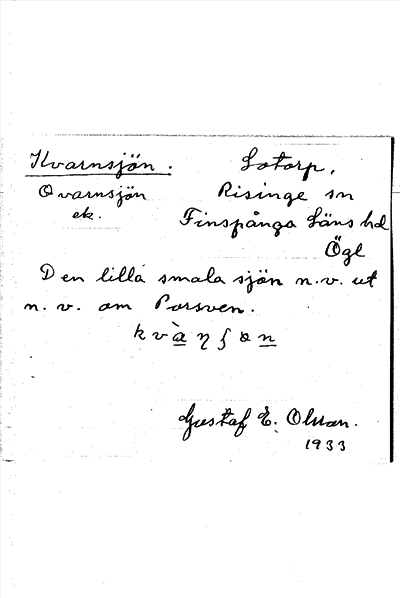 Kvarnsjön. Lotorp,
Qvarnsjön Risinge sn
ek. Finspånga Läns hd
Ögl
Den lilla smala sjön n.v. ut
n. v. om Porsven.
Gustaf E. Olsson.
1933